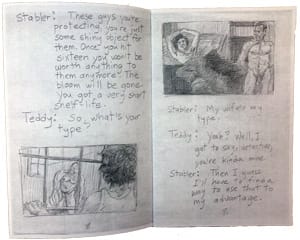 Stabler: These guys you're
protecting, you're just
some shiny object for
them. Once you hit
sixteen you won't be
worth anything to
them anymore. The
bloom will be gone.
You got a very short
shelf-life.
Teddy: So what's your
type
Stabler: My wife's my
type.
Teddy: Yeah? Well, I
got to say, detective,
you're kinda mine.
Stabler: Then I guess
I'll have to find a
way to use that to
my advantage.